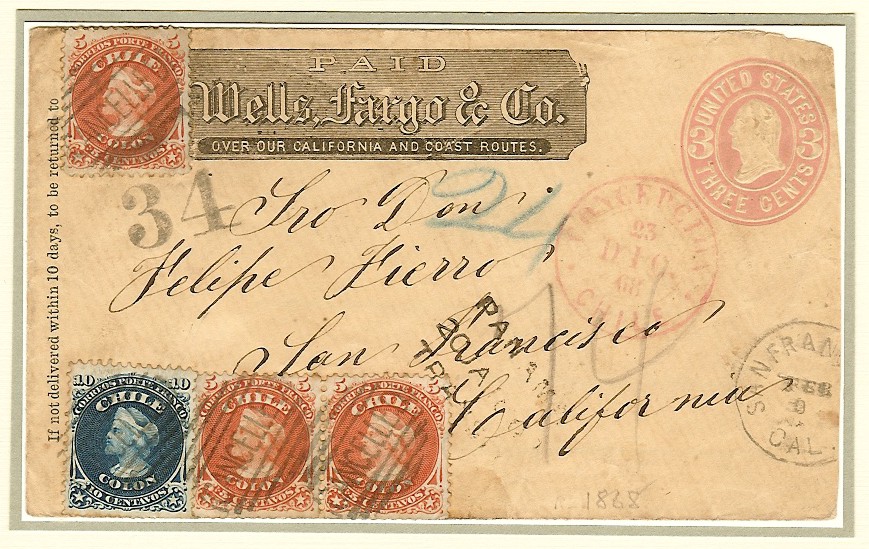 5 CORREOS PORTE FRANCO 5
CHILE
COLON
5 CENTAVOS
CANCELLED
PAID
Wells, Fargo & Co.
OVER OUR CALIFORNIA AND COAST ROUTES.
3 UNITED STATES 3
THREE CENTS
If not delivered within 10 days, to be returned to
34
24
Sro Don
Felipe Fierro
San Francisco
California
CONCEPCION
23
DIC
68
CHILE
SAN FRAN
FEB
9
CAL.
10 CORREOS PORTE FRANCO 10
CHILE
COLON
10 CENTAVOS
5 CORREOS PORTE FRANCO 5
CHILE
COLON
5 CENTAVOS
CANCELLED
5 CORREOS PORTE FRANCO 5
CHILE
COLON
5 CENTAVOS
CANCELLED
1868